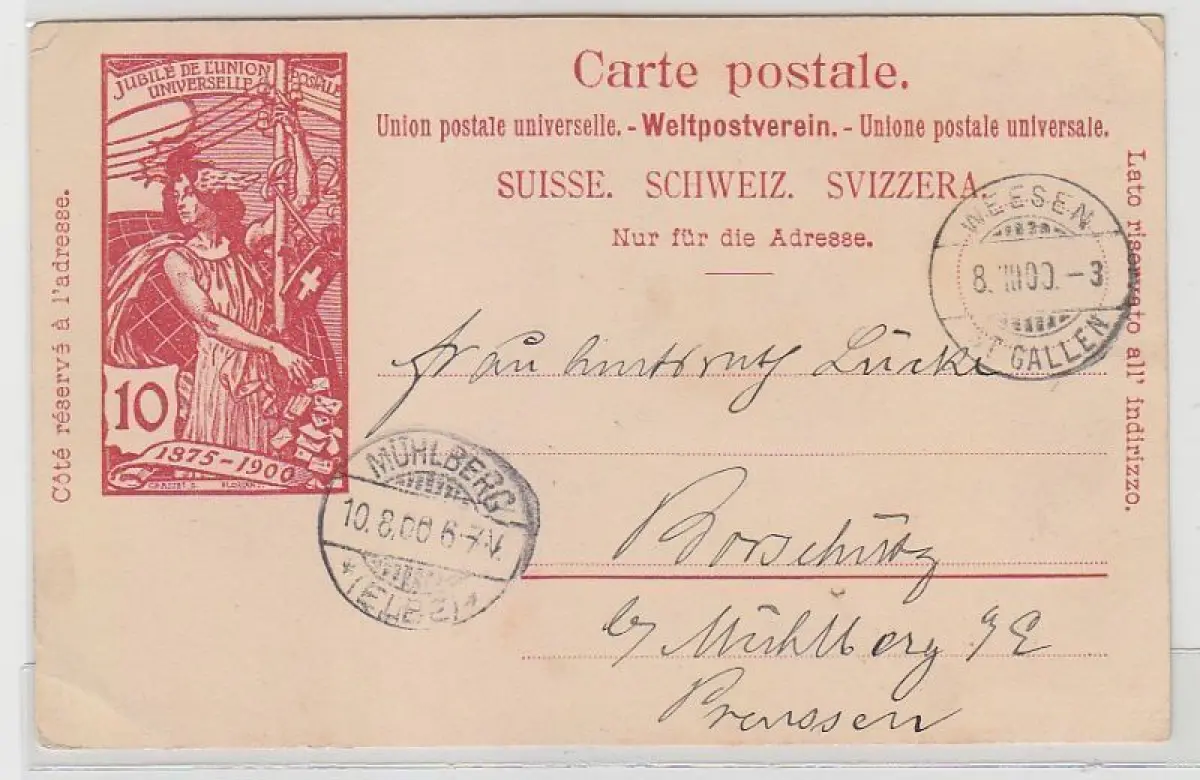 JUBILÉ DE L'UNION POSTALE
UNIVERSELLE
10
1875-1900
Carte postale.
Union postale universelle. - Weltpostverein. - Unione postale universale.
SUISSE. SCHWEIZ. SVIZZERA.
Nur für die Adresse.
Côté réservé à l'adresse.
Lato riservato all' indirizzo.
WEESEN
8. VIII 00. - 3
ST GALLEN
Frau Amtsrath Lücke
MÜHLBERG
10. 8. 00 6-7 V.
* (ELBE) *
Borschütz
b/ Mühlberg a/E
Preussen